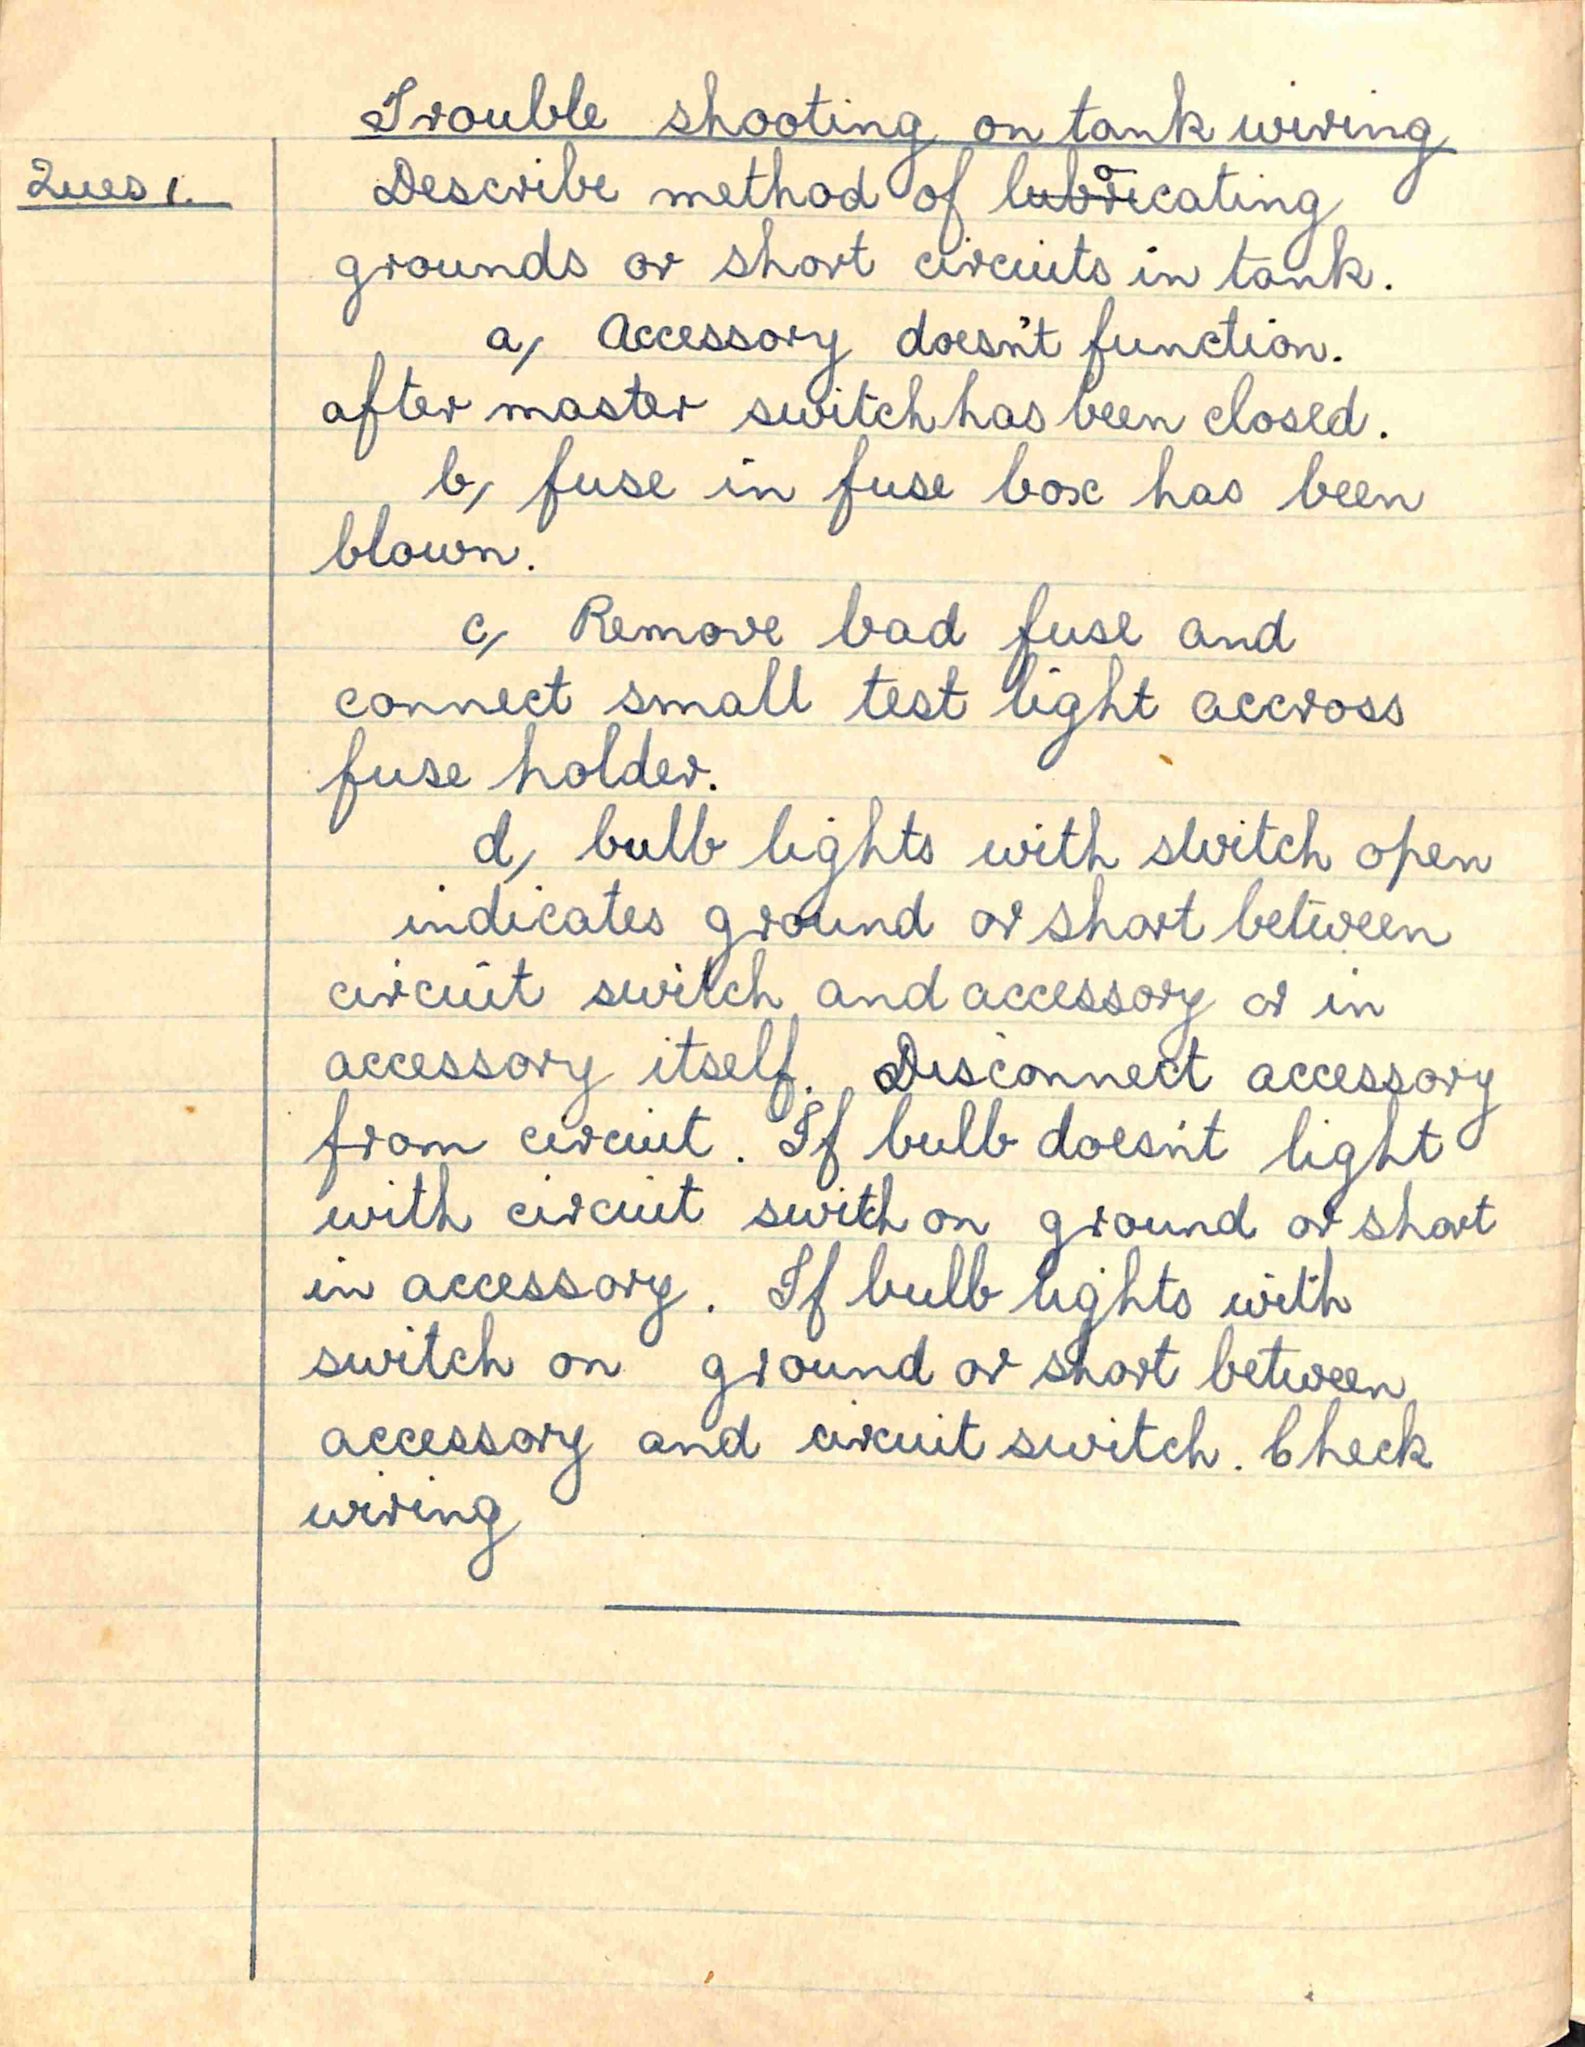 Trouble shooting on tank wiring
Ques 1. Describe method of locating
grounds or short circuits in tank.
a, Accessory doesn't function.
after master switch has been closed.
b, fuse in fuse box has been
blown.
c, Remove bad fuse and
connect small test light accross
fuse holder.
d, bulb lights with switch open
indicates ground or short between
circuit switch and accessory or in
accessory itself. Disconnect accessory
from circuit. If bulb doesn't light
with circuit switch on ground or short
in accessory. If bulb lights with
switch on ground or short between
accessory and circuit switch. Check
wiring